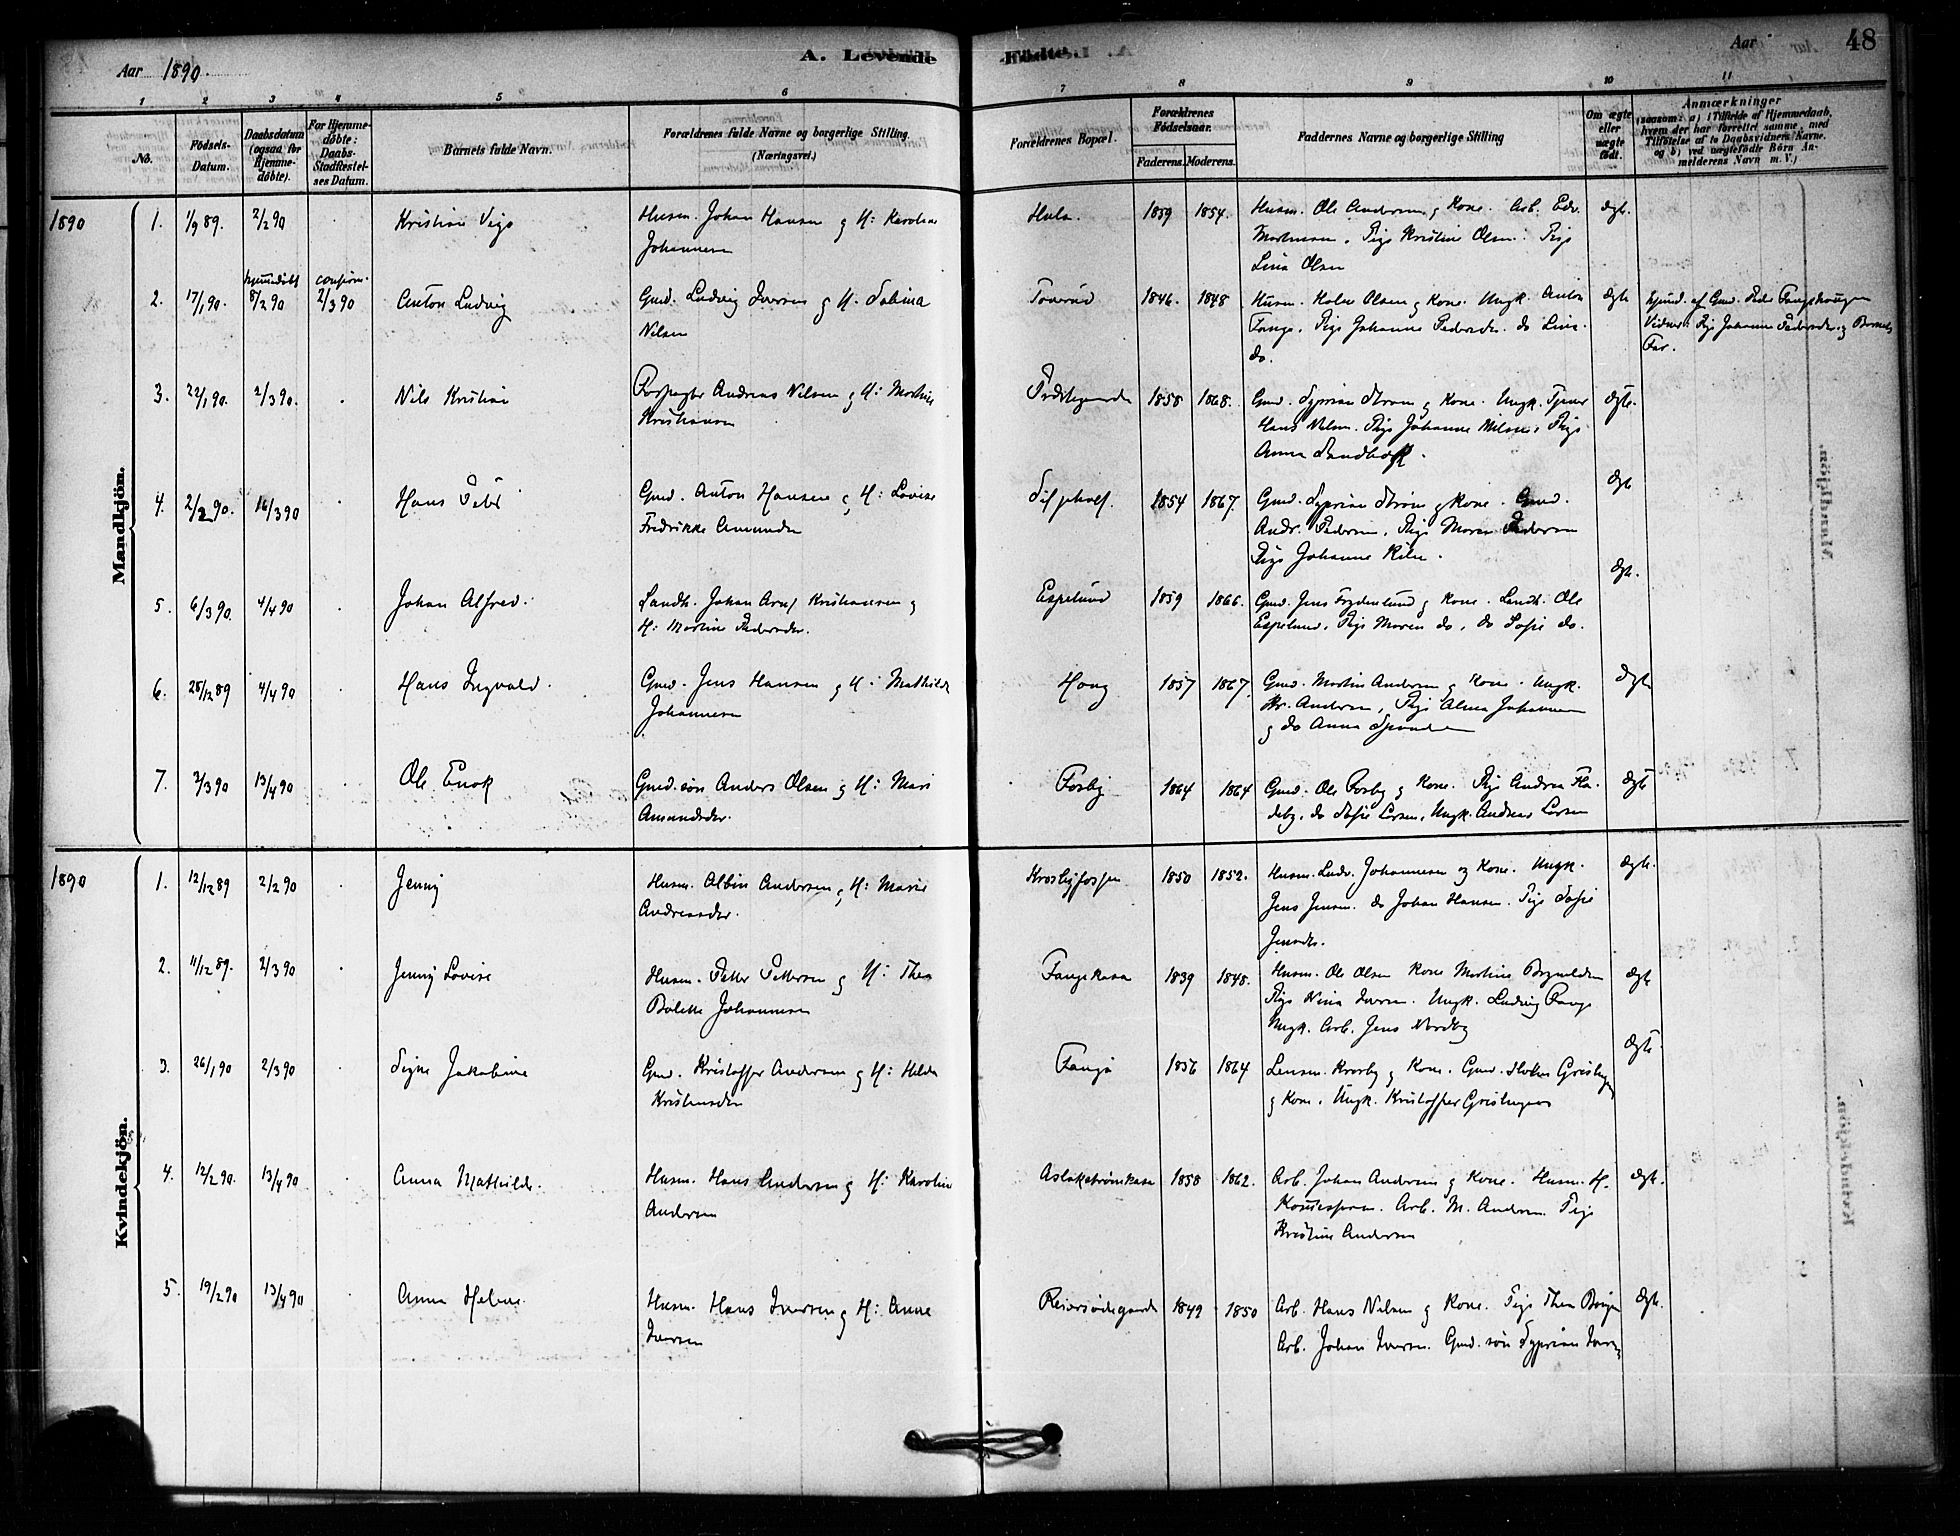 A. Levende
Fødte.
48
Aar 1890.
Aar
1 2 3 4 5 6 7 8 9 10 11
No.
Fødsels-
Datum.
Daabsdatum
(ogsaa for
Hjemme-
døbte).
For Hjemme-
døbte:
Daabs-
Stadfæstel-
ses Datum.
Barnets fulde Navn.
Forældrenes fulde Navne og borgerlige Stilling.
(Næringsvei.)
Forældrenes Bopæl.
Forældrenes
Fødselsaar.
Faderens. Moderens.
Faddernes Navne og borgerlige Stilling
Om ægte
eller
uægte
født.
Anmærkninger
(saasom: a) i Tilfælde af Hjemmedaab,
hvem der har forrettet samme, med
Tilføielse af to Daabsvidners Navne,
og b) ved uægtefødte Börn An-
melderens Navn m. V.)
Mandkjön.
1890 1. 1/9 89. 2/2 90 Kristian Vigo Husm. Johan Hansen og H: Karoline
Johannesen
Hula. 1859 1854. Husm. Ole Andersen og Kone. Arb. Edv.
Mortensen, Pige Kristine Olsen. Pige
Lina Olsen
ægt.
2. 17/1 90. hjemdøbt 8/2 90 confirm. 2/3 90 Anton Ludvig Gmd. Ludvig Iversen og H. Sabina
Nilsen
Toverud 1846. 1848 Husm. Olsen og Kone. Ungk. Anton
Fange. Pige Johanne Pedersdr. do Lina
do.
ægte
Hjemd. af Gmd. Peder
Vidner: Pige Johanne Pedersdr. og Barnets
Far.
3. 22/1 90. 2/3 90. Nils Kristian Forpagter Andreas Nilsen og H: Martine
Kristiansen
1858 1868. Gmd. Syprian Strøm og Kone. Ungk. Tjener
Hans Nilsen. Pige Johanne Nilsen, Pige
Anna Sandbæk.
ægte.
4. 2/2 90. 16/3 90 Hans Peder Gmd. Anton Hansen og H: Lovise
Fredrikke Amundsen
1854 1867. Gmd. Syprian Strøm og Kone. Gmd.
Andr. Pedersen, Pige Maren Pedersen
Pige Johanne
ægt
5. 6/3 90. 4/4 90 Johan Alfred. Landh. Johan Kristiansen og
H: Martine Pedersdr.
Espelund 1859 1866. Gmd. Jens Frydenlund og Kone. Landh. Ole
Espelund, Pige Maren do, do Sofie do.
ægt.
6. 28/12 89 4/4 90 Hans Ingvald. Gmd. Jens Hansen og H: Mathilde
Johannesen
Haug 1857 1867. Gmd. Martin Andersen og Kone. Ungk.
Kr. Andersen, Pige Alma Johannesen
og do Anna
ægte
7. 2/3 90 13/4 90 Ole Enok Gmd.søn Anders Olsen og H: Mari
Amundsdr.
Fosby 1864 1864 Gmd. Ole Fosby og Kone. Pige Andrea Fla-
deby. do Sofie Larsen, Ungk. Andreas Larsen
ægte
Kvindekjön.
1890 1. 12/12 89 2/2 90 Jenny Husm. Albin Andersen og H: Marie
Andreasdr.
Krosbyfossen 1850 1852. Husm. Ludv. Johannesen og Kone. Ungk.
Jens Jensen. do Johan Hansen. Pige Sofie
Jensdtr.
ægte.
2. 11/12 89. 2/3 90 Jenny Lovise Husm. Petter Pettersen og H: Thea
Bolette Johannesen
Fangekasa 1839 1848. Husm. Ole Olsen Kone Martine
Pige Nina Iversen. Ungk. Ludvig Fange
Ungk. Arb. Jens Nordby
ægte
3. 26/1 90 2/3 90 Signe Jakobine Gmd. Kristoffer Andersen og H: Hilda
Kristensdtr
Fange 1856 1864 Lensm. Krosby og Kone. Gmd.
og Kone, Ungk. Kristoffer
ægte.
4. 12/2 90. 13/4 90 Anna Mathilde. Husm. Hans Andersen og H: Karoline
Andersen
Aslakstrømkasa 1858 1862. Arb. Johan Andersen og Kone. Husm. H.
Arb. M. Andersen. Pige
Kristine Andersen
ægte.
5. 19/2 90 13/4 90 Anna Helene Husm. Hans Iversen og H: Anne
Iversen
Reiersødegaarde 1849 1850 Arb. Hans Nilsen og Kone. Pige Thea Borgen
Arb. Johan Iversen. Gmd.søn Syprian Iversen
ægte.